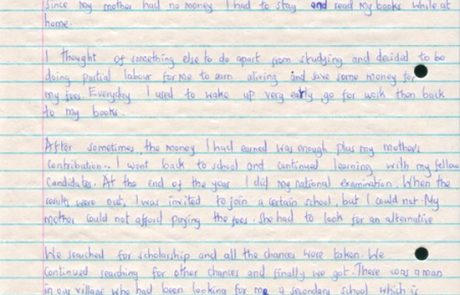 Since my mother had no money I had to stay and read my books while at
home.
I thought of something else to do apart from studying and decided to be
doing partial labour for me to earn aliving and save some money for
my fees. Everyday I used to wake up very early go for work then back
to my books.
After sometimes the money I had earned was enough plus my mothers
contribution.. I went back to school and continued learning with my fellow
candidates. At the end of the year I did my national examination. When the
results were out, I was invited to join a certain school, but I could not. My
mother could not afford paying the fees. She had to look for an alternative
We searched for scholarship and all the chances were taken. We
continued searching for other chances and finally we got. There was a man
in our village who had been looking for me a secondary school which is